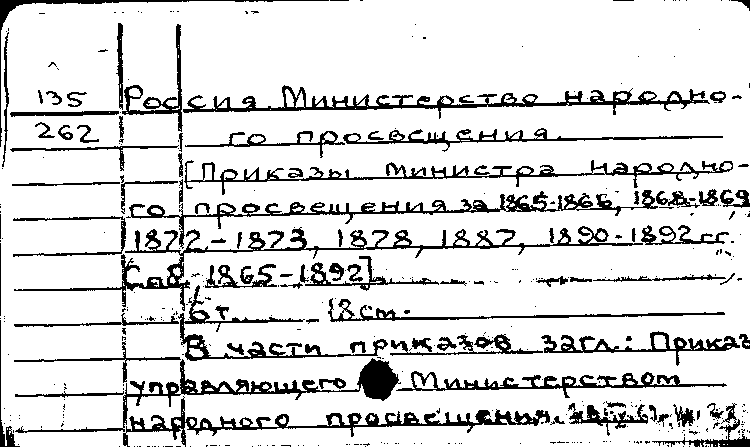 135 Россия. Министерство народно-
262 го просвещения.
[Приказы министра народно-
го просвещения за 1865-1866, 1868-1869,
1872-1873, 1878, 1887, 1890-1892 гг.
Спб, 1865-1892].
6 т. 18 см.
В части приказов загл.: Приказ
управляющего Министерством
народного просвещения.